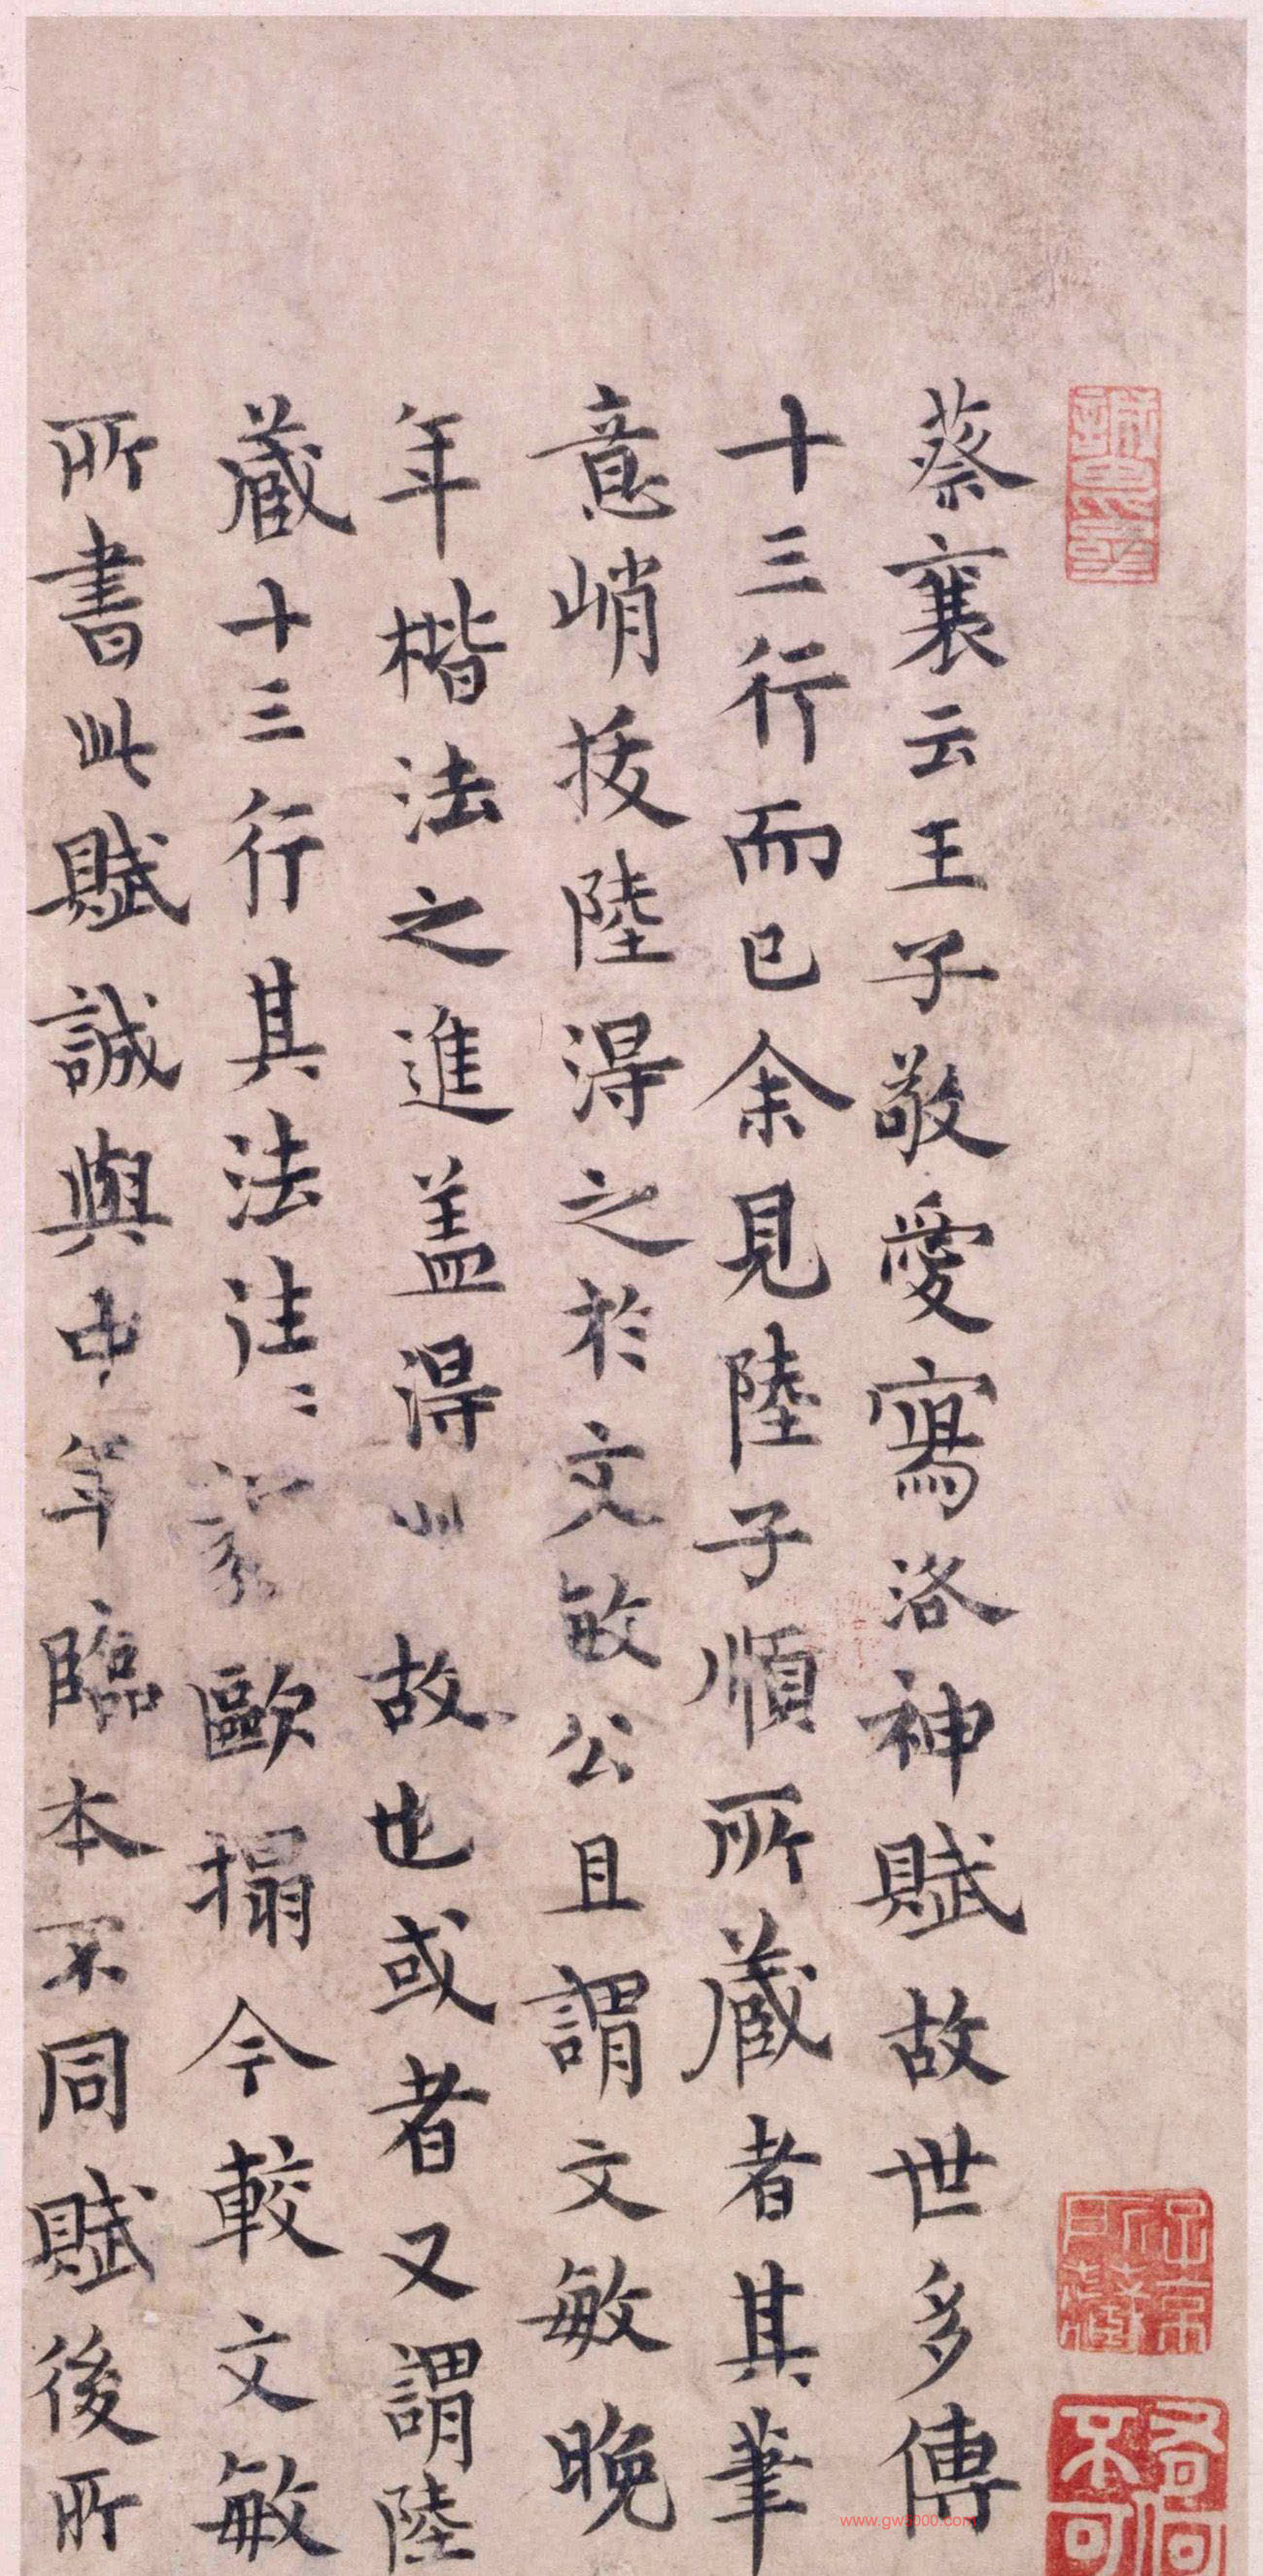 蔡襄云王子敬愛寫洛神賦故世多傳
十三行而已余見陸子順所藏者其筆
意峭拔陸得之於文敏公且謂文敏晚
年楷法之進盖得 故也或者又謂陸
藏十三行其法往〻 歐搨今較文敏
所書此賦誠與中年臨本不同賦後所
www.gw3000.com